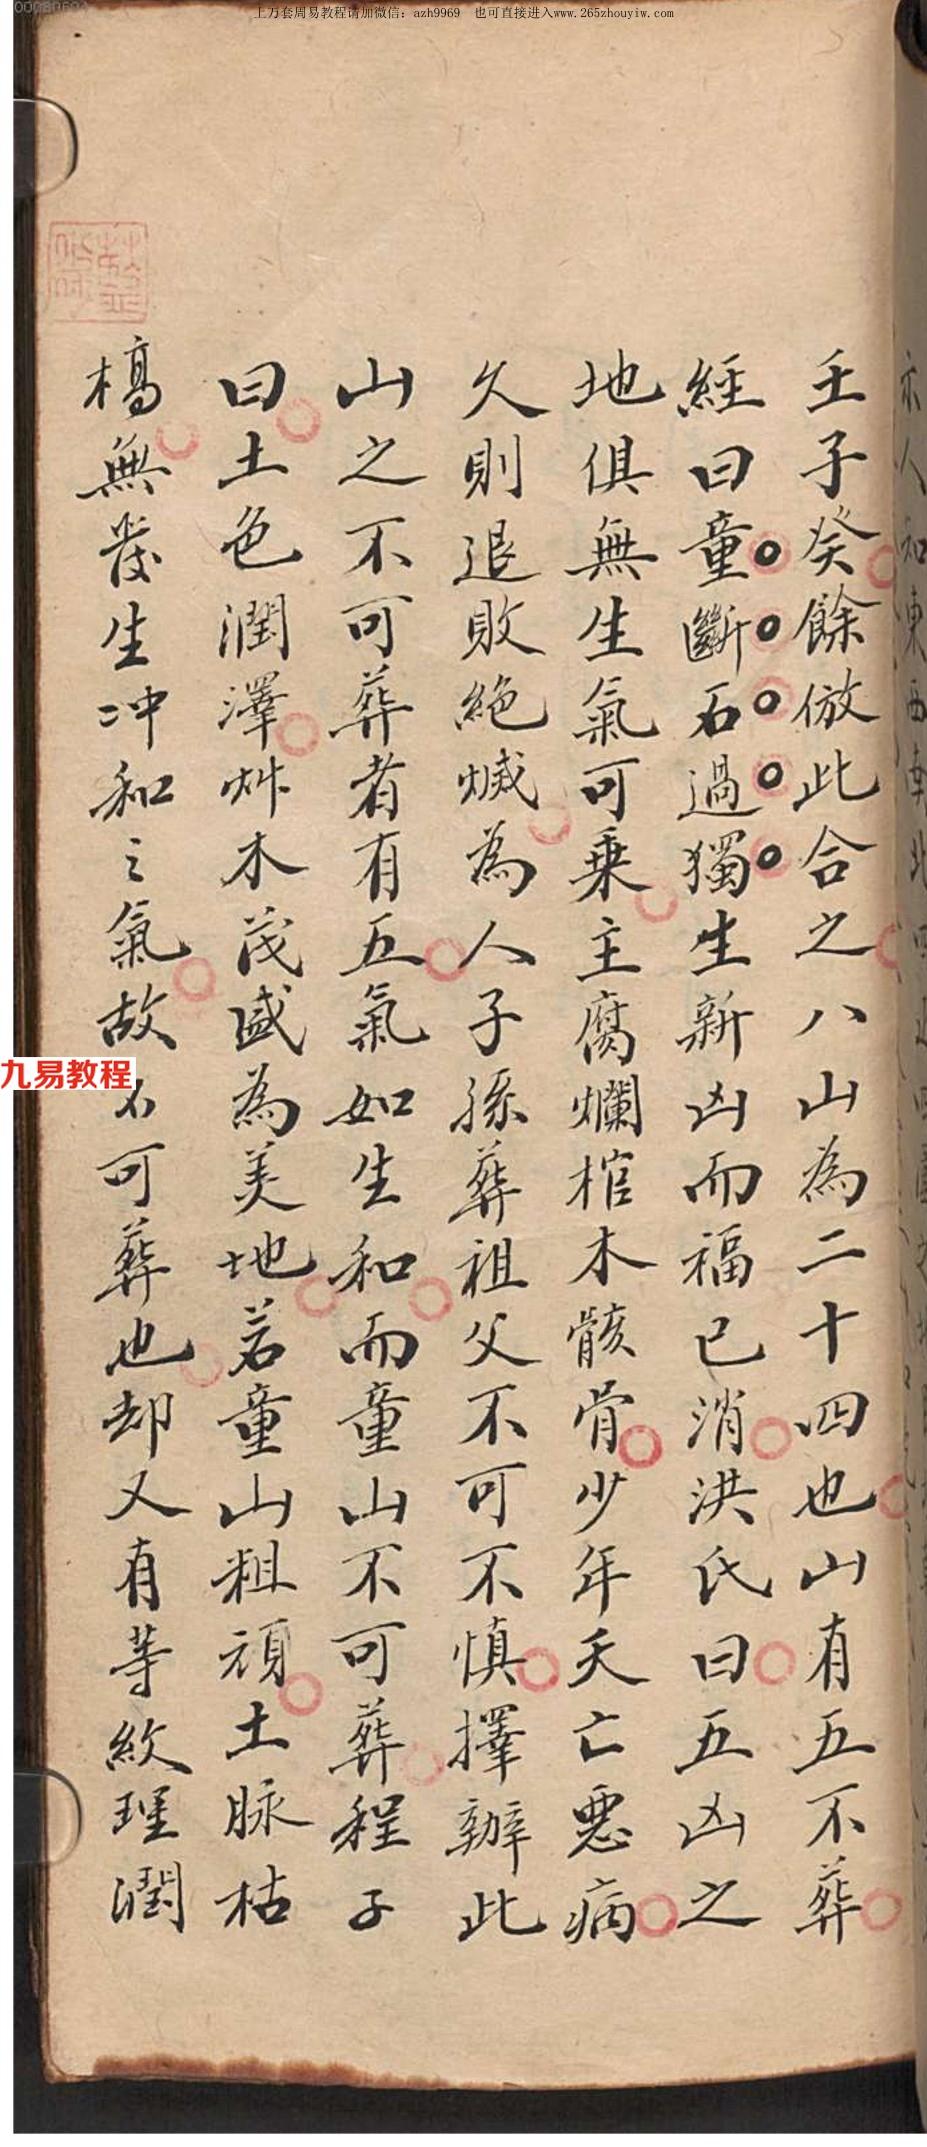 上万套周易教程请加微信：azh9969　也可直接进入www.265zhouyiw.com
壬子癸餘倣此合之八山為二十四也山有五不葬
經曰童斷石過獨生新凶而福已消洪氏曰五凶之
地俱無生氣可乗主腐爛棺木骸骨少年夭亡惡病
久則退敗絕滅為人子孫葬祖父不可不慎擇辦此
山之不可葬者有五氣如生和而童山不可葬程子
曰土色潤澤艸木茂盛為美地若童山粗頑土脉枯
槁無發生冲和之氣故不可葬也却又有等紋理潤
九易教程